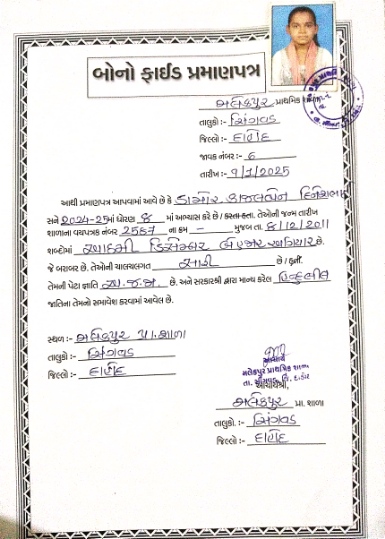 બોનો ફાઈડ પ્રમાણપત્ર
મલેકપુર પ્રાથમિક શાળા
તાલુકો :- સિંગવડ
જિલ્લો :- દાહોદ
જાવક નંબર :- 6
તારીખ :- 9/7/2025
આથી પ્રમાણપત્ર આપવામાં આવે છે કે ડામોર કાજલબેન દિનેશભાઇ
સને 2024-25માં ધોરણ 8 માં અભ્યાસ કરે છે / કરતા હતા. તેઓની જન્મ તારીખ
શાળાના વયપત્રક નંબર 2567 ના ક્રમ – મુજબ તા. 8/12/2011
શબ્દોમાં ડિસેમ્બર બે હજાર અગિયાર છે.
જે બરાબર છે. તેઓની ચાલચલગત સારી છે / હતી.
તેમની પેટા જ્ઞાતિ અ.જ.જા. છે. અને સરકારશ્રી દ્વારા માન્ય કરેલ
જાતિના તેમનો સમાવેશ કરવામાં આવેલ છે.
સ્થળ :- મલેકપુર પ્રા.શાળા
તાલુકો :- સિંગવડ
જિલ્લો :- દાહોદ
આચાર્ય
મલેકપુર પ્રાથમિક શાળા
તા. સીંગવડ જિ. દાહોદ
આચાર્યશ્રી,
મલેકપુર પ્રા. શાળા
તાલુકો :- સિંગવડ
જિલ્લો :- દાહોદ